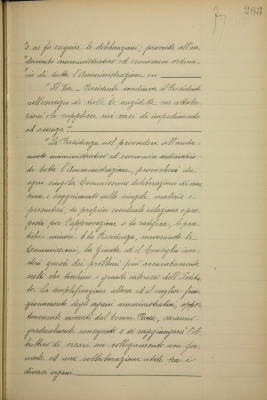 263
e ne fa eseguire le deliberazioni; provvede all'an-
damento amministrativo ed economico ordina-
rio di tutta l'Amministrazione
"Il Vice-Presidente coadiuva il Presidente
nell'esercizio di tutte le anzidette sue attribu-
zioni e lo supplisce nei casi di impedimento
od assenza."
"La Presidenza nel provvedere all'anda-
mento amministrativo ed economico ordinario
di tutta l'Amministrazione, provocherà da
ogni singola Commissione deliberazioni di
e suggerimenti nelle singole materie e
presenterà, in proprio eventuale relazione e pro-
poste per l'approvazione o la ratifica, le pra-
tiche
Commissioni, la Giunta ed il Consiglio
questi dei problemi più
che toccano i grandi interessi dell'Istitu-
to. La semplificazione allora ed il miglior fun-
zionamento degli organi amministrativi,
invocati dal Comm. saranno
gradualmente conseguiti e si raggiungerà l'o-
biettivo di creare un collegamento non for-
male ed una collaborazione utile tra i
diversi organi.